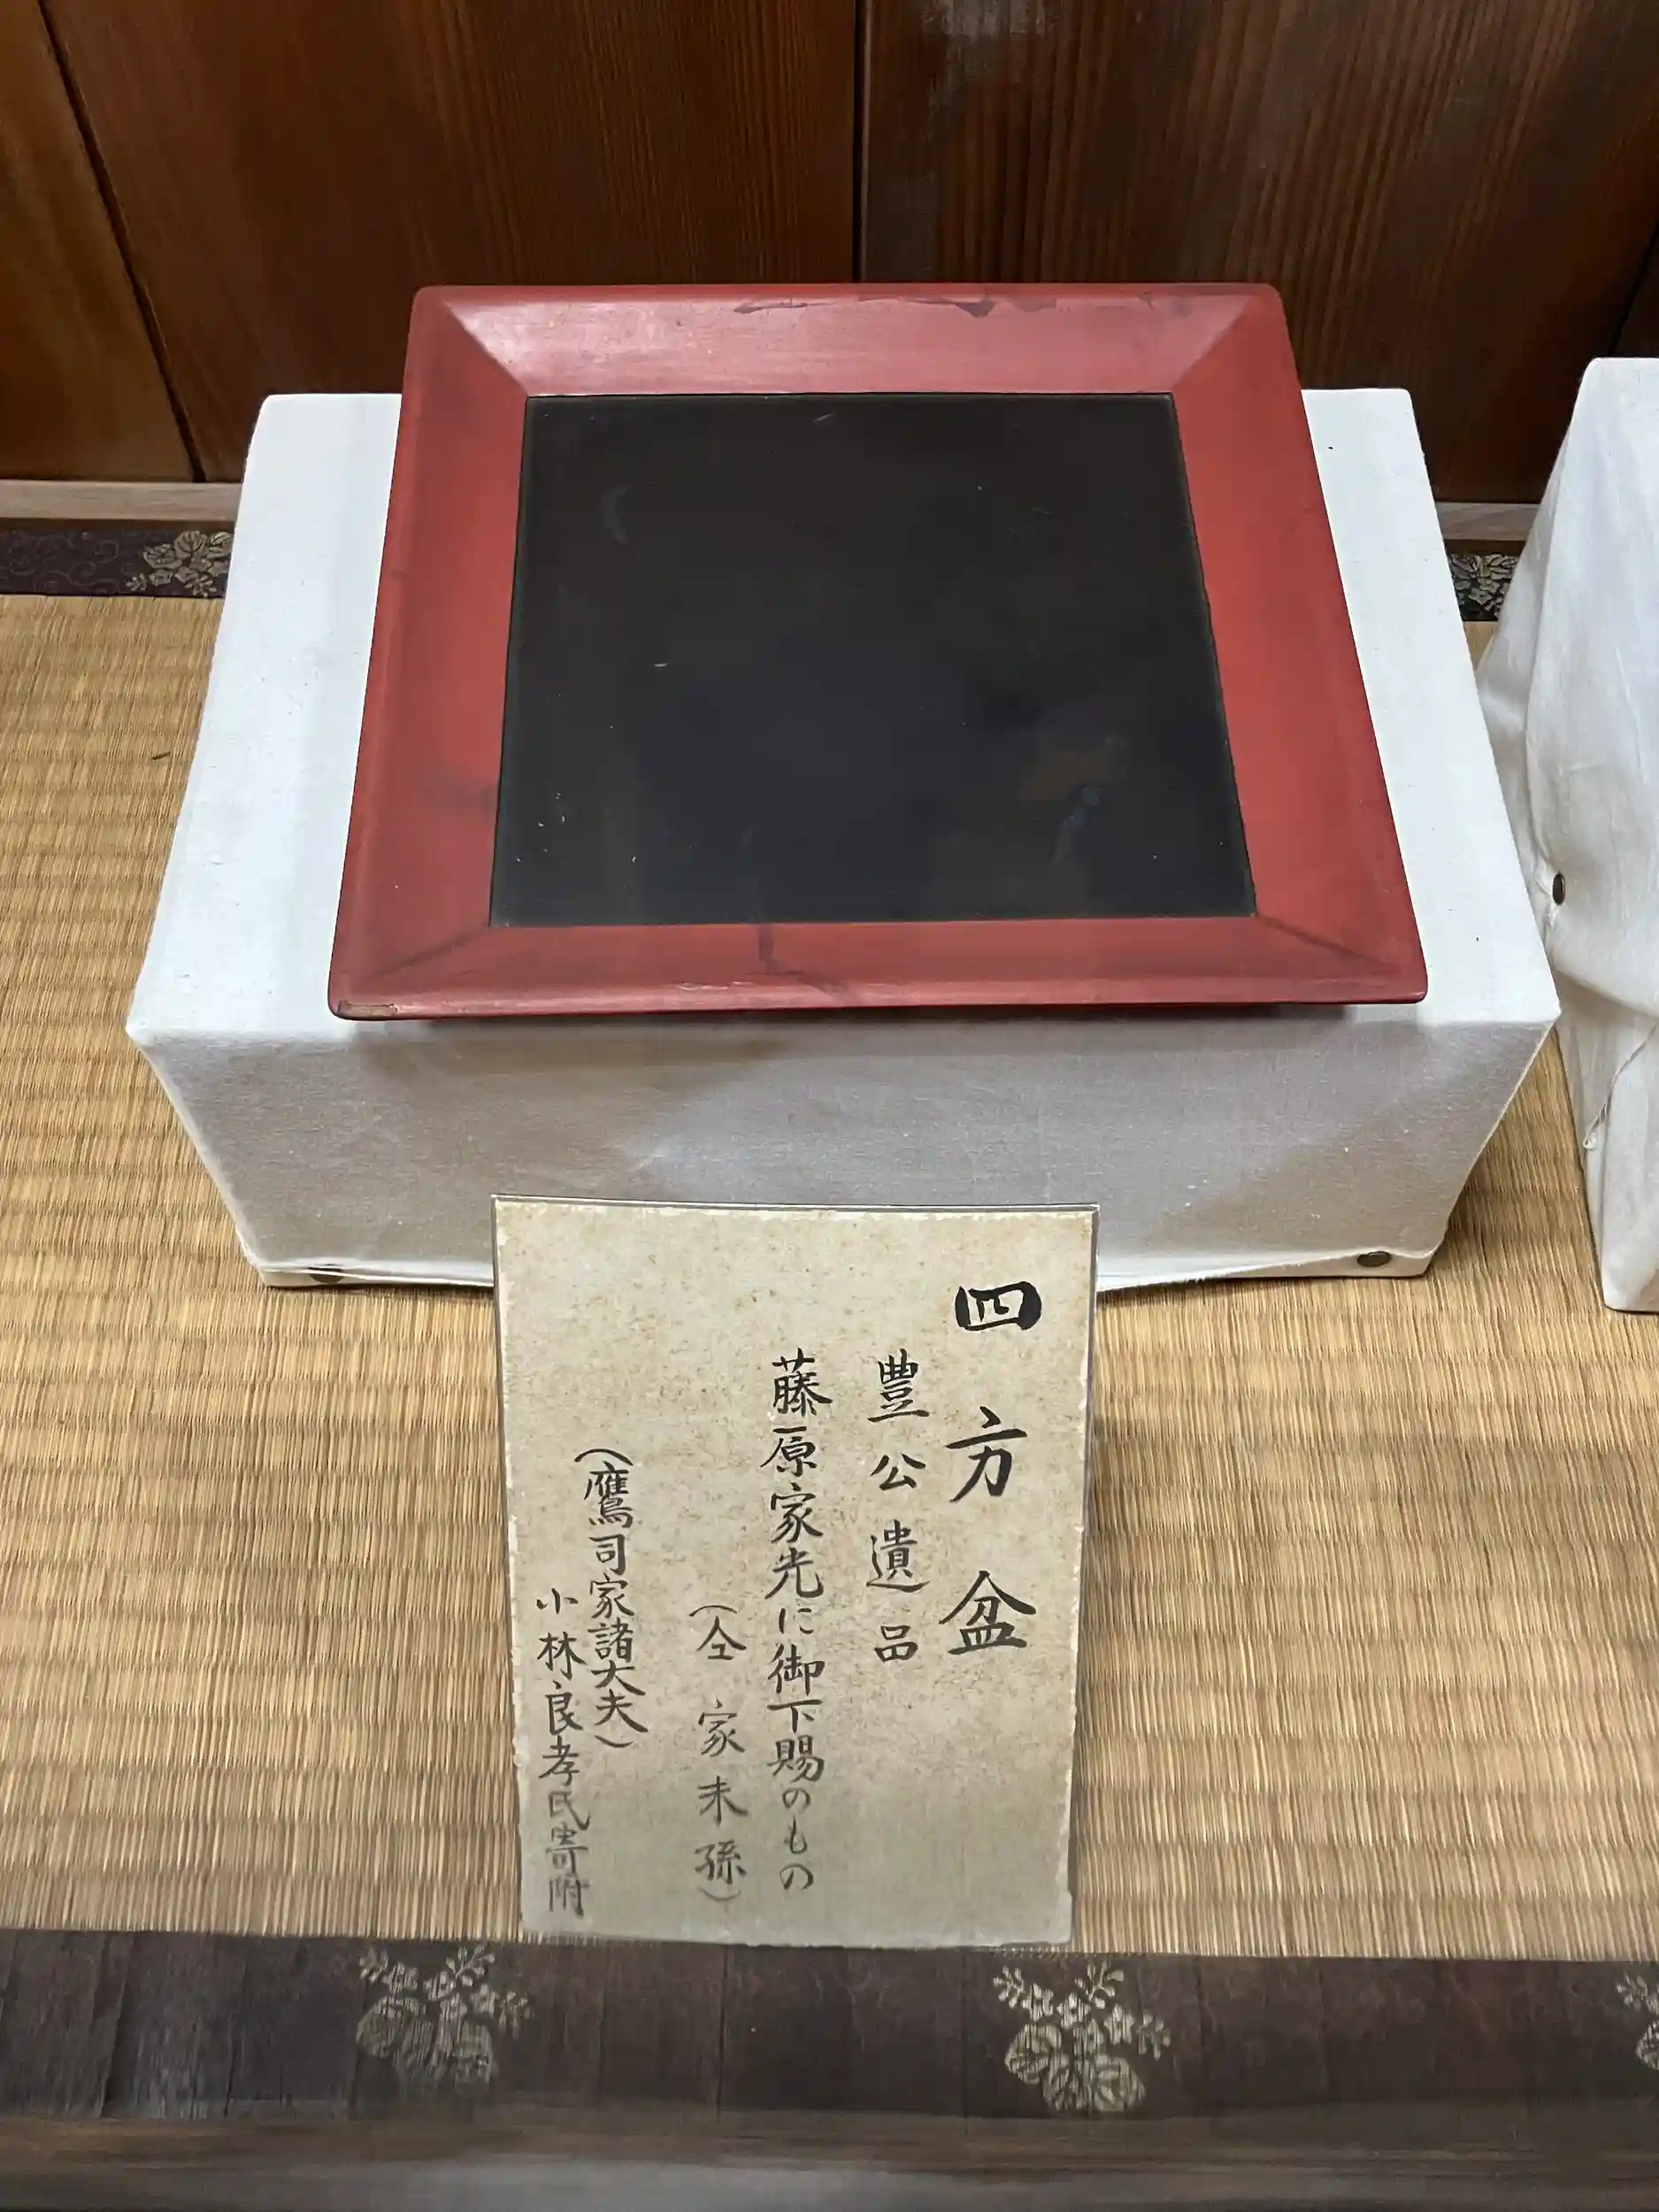 四方盆
豊公遺品
藤原家光に御下賜のもの
(仝家末孫)
(鷹司家諸大夫)
小林良孝氏寄附